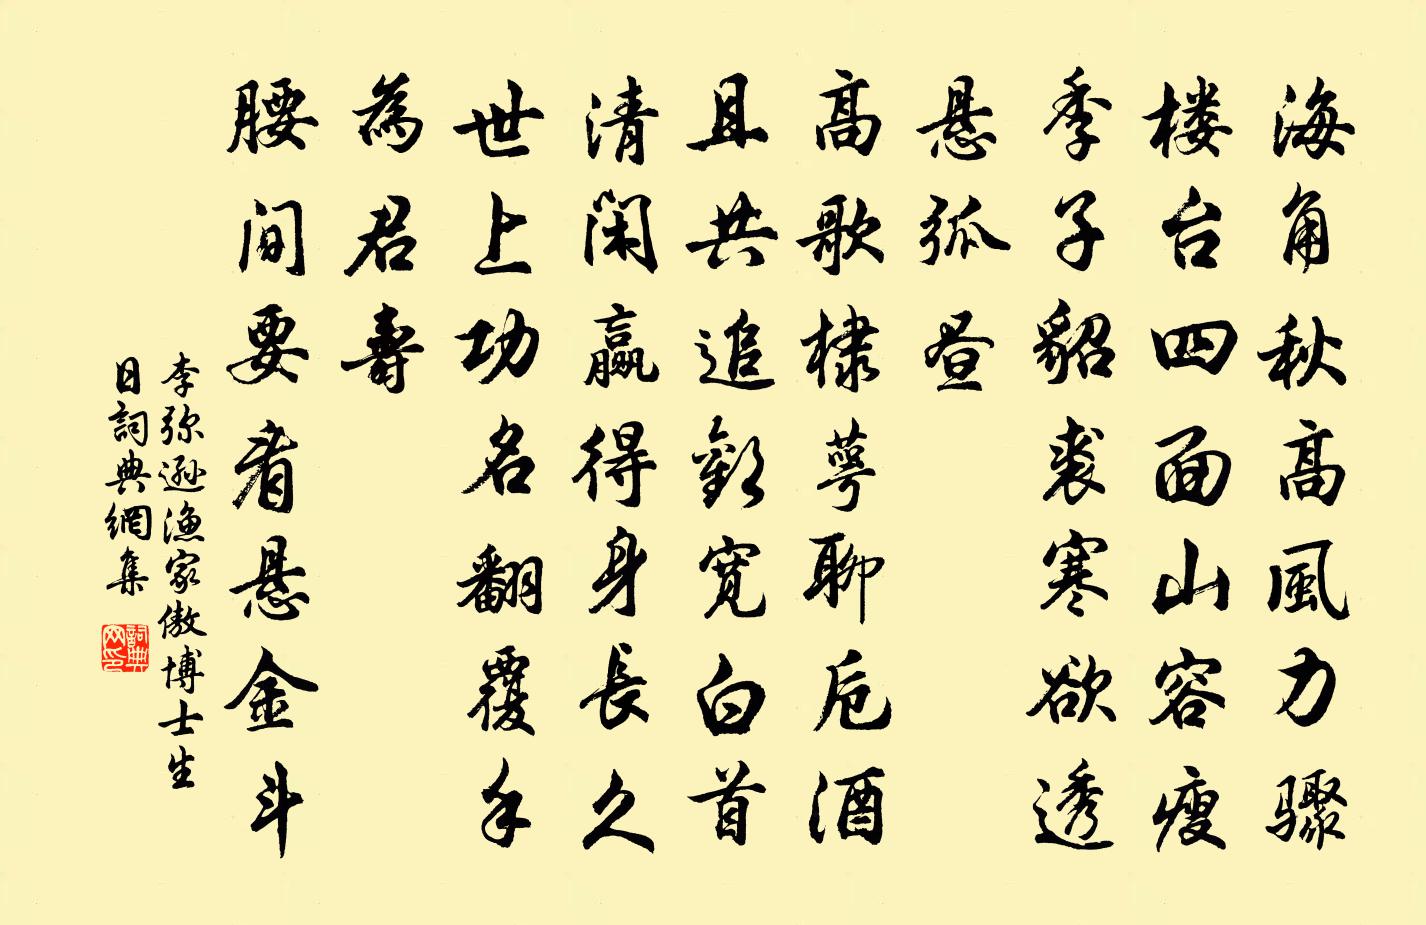 海角秋高風力驟
楼台四面山容瘦
季子貂裘寒欲透
悬弧昼
高歌棣萼聊卮酒
且共追歡宽白首
清闲贏得身長久
世上功名翻覆手
為君壽
腰间要看悬金斗
李弥遜漁家傲博士生
日詞典網集
詞典
网印